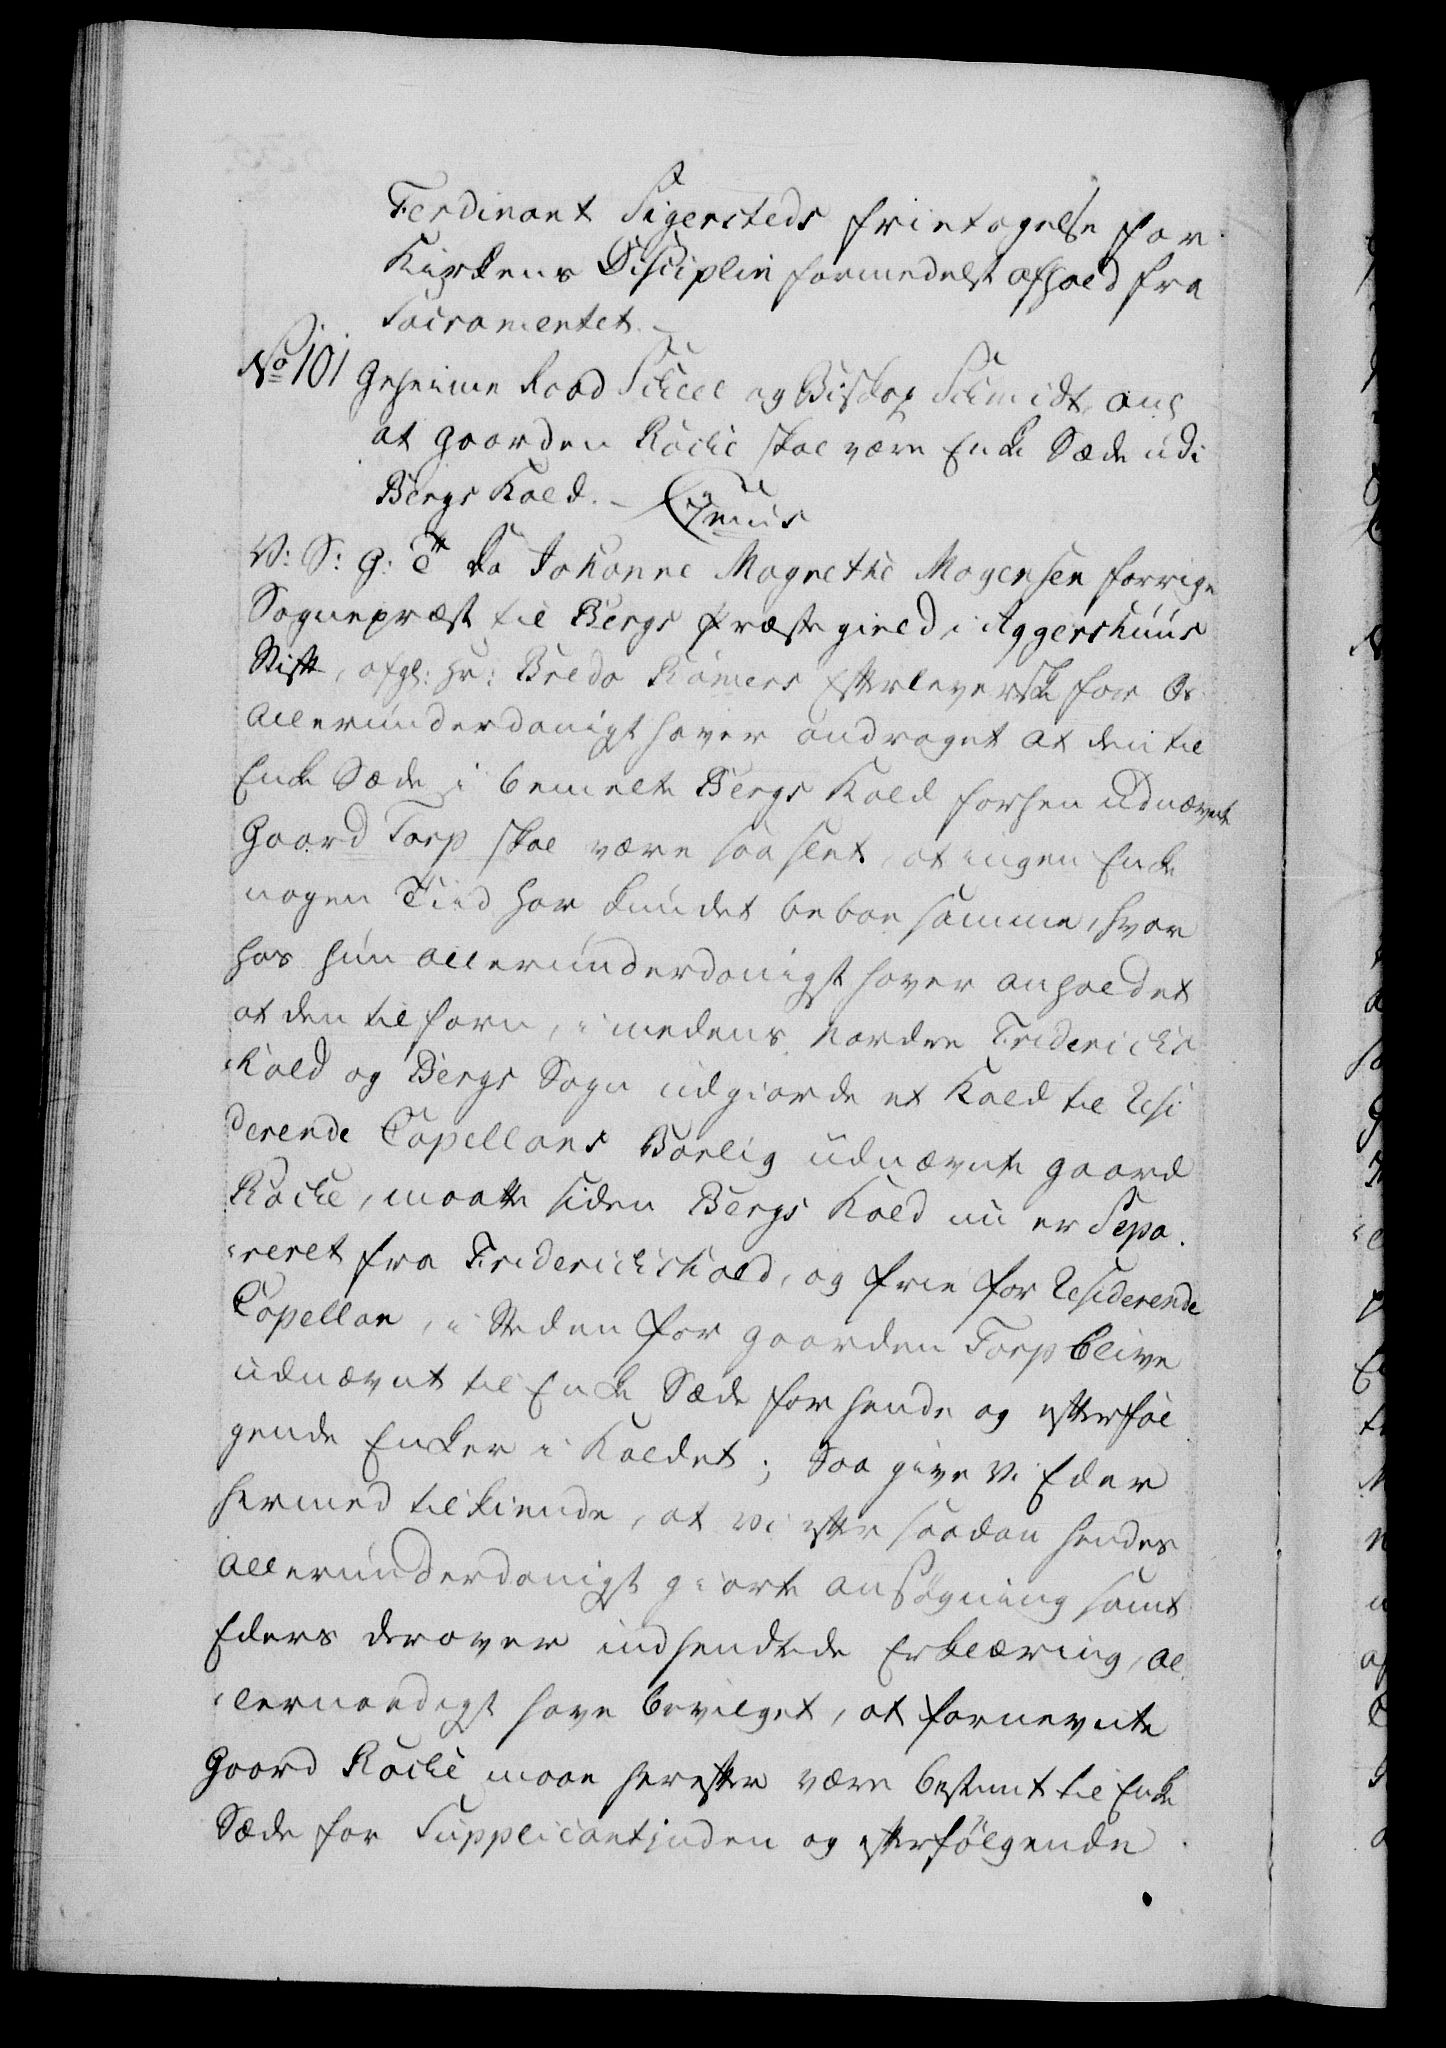 Ferdinant Sigersteds frietagelse for
Kirkens Disciplin formedelst afhold fra
Sacramentet.
No 101 Geheime Raad Scheel og Biskop Schmidt, ang
at gaarden Röche skal være Enke Sæde udi
Bergs Kald. -
V: S: G: Da Johanne Magrethe Mogensen forrige
Sognepræst til Bergs Præstegield i Aggershuus
Stift, afg: Hr: Bredo Römers Efterleverske for Os
allerunderdanigst haver andraget at den til
Enke Sæde i bemelte Bergs Kald forhen udnævnte
Gaard Torp skal være saa slet, at ingen Enke
nogen Tiid har kundet beboe samme, hvor
hos hun allerunderdanigst haver anholdet
at den tilforn, imedens Nordre Friderichs
hald og Bergs Sogn udgiorde et Kald til Resi
derende Capellans Boelig udnævnte gaard
Röche, maatte siden Bergs Kald nu er Sepa
reret fra Friderichshald, og frie for Residerende
Capellan, i Steden for gaarden Torp blive
udnævnt til Enke Sæde for hende og efterføl
gende Enker i Kaldet; Saa give Vi Eder
hermed tilkiende, at vi efter saadan hendes
allerunderdanigst giorte ansøgning samt
Eders derover indsendte Erklæring, al
lernaadigst have bevilget, at fornevnte
Gaard Röche maae herefter være bestemt til Enke
Sæde for Supplicantinden og efterfølgende